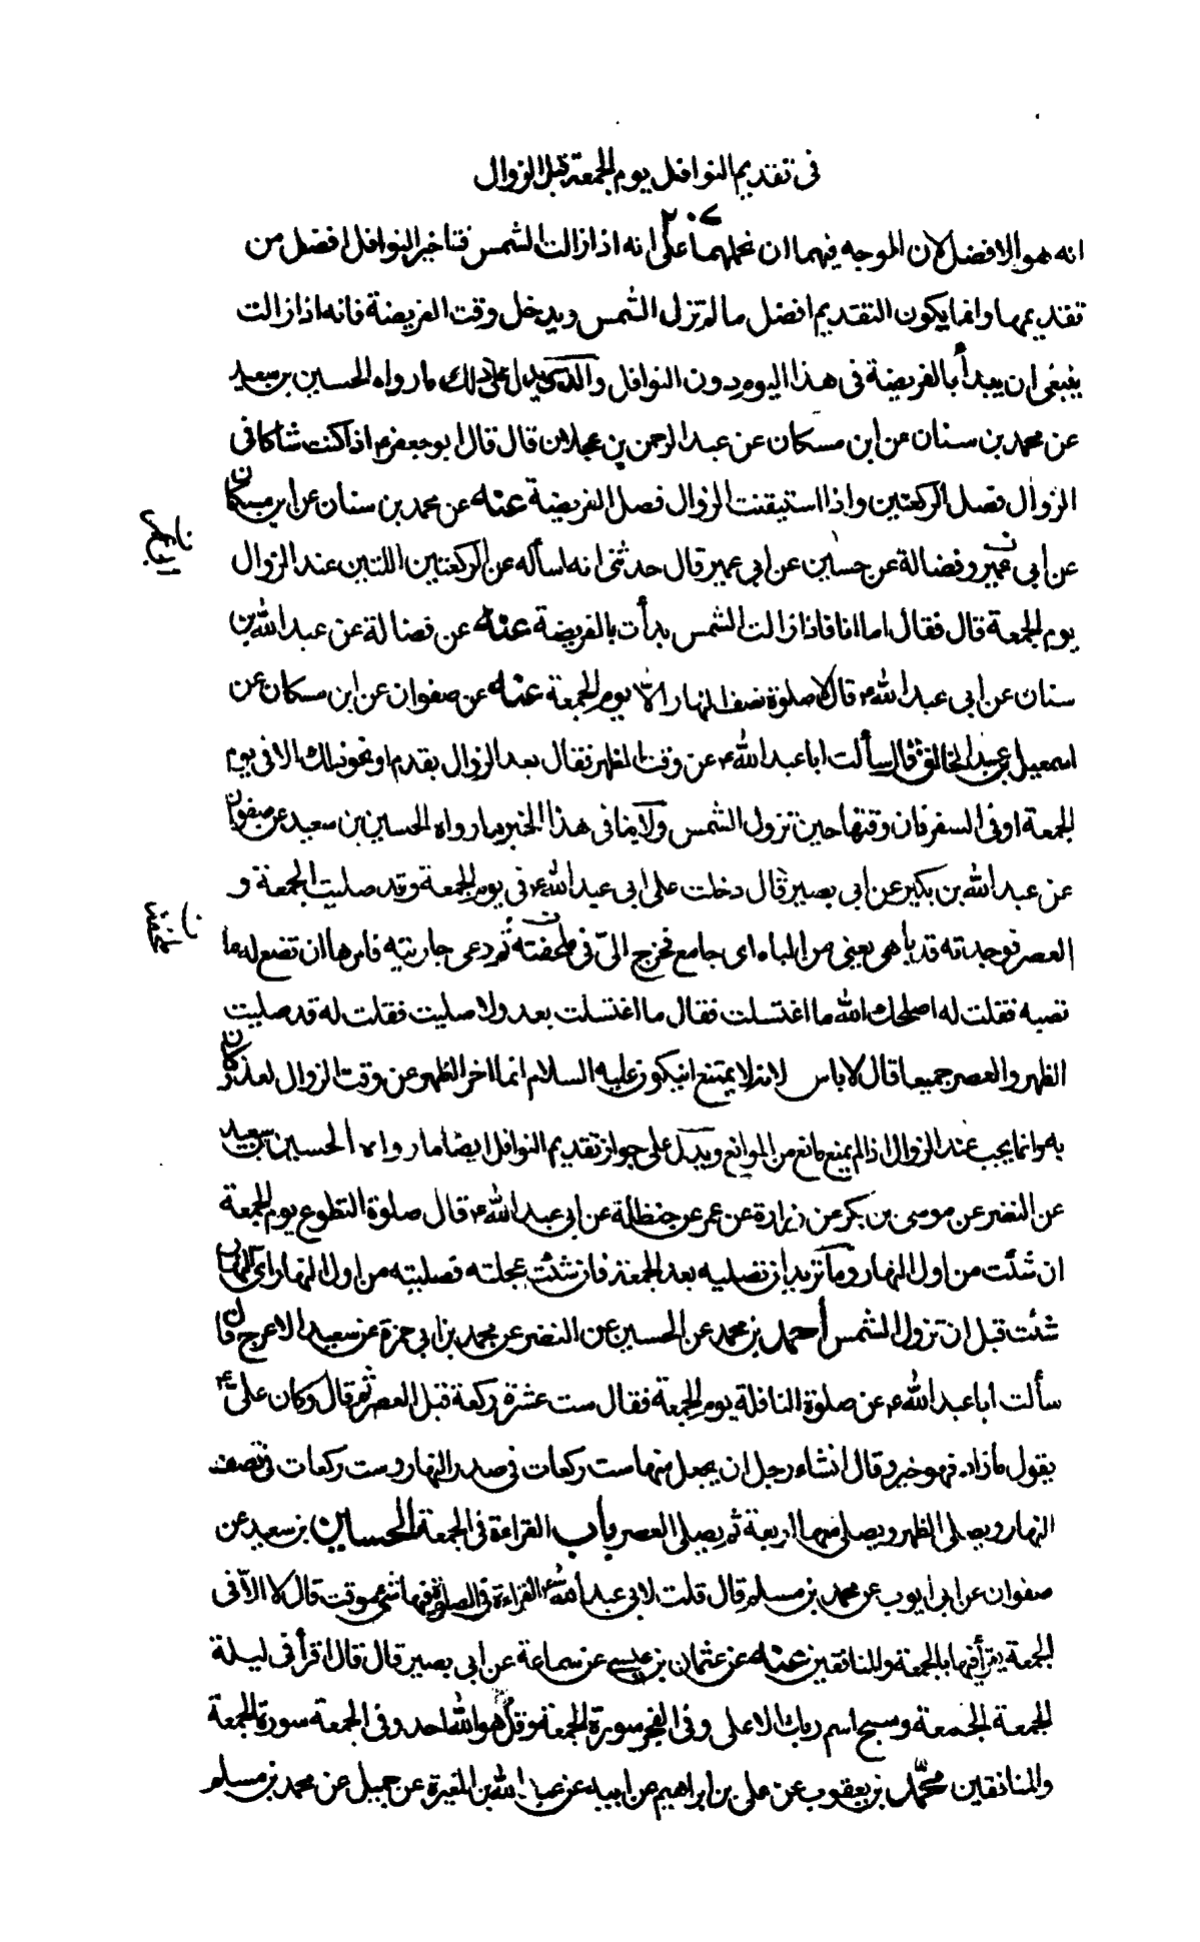 فى تقديم النوافل يوم الجمعة قبل الزوال
٢٠٧
انه هو الافضل لان الوجه فيهما ان نحملهما على انه اذا زالت الشمس فتاخير النوافل افضل من
تقديمها وانما يكون التقديم افضل ما لم تزل الشمس ويدخل وقت الفريضة فانه اذا زالت
ينبغى ان يبدأ بالفريضة فى هذا اليوم دون النوافل والذى يدل على ذلك ما رواه الحسين بن سعيد
عن محمد بن سنان عن ابن مسكان عن عبد الرحمن بن عجلان قال قال ابو جعفر ع اذا كنت شاكا فى
الزوال فصل الركعتين واذا استيقنت الزوال فصل الفريضة عنه عن محمد بن سنان عن ابن مسكان
عن ابن ابى عمير وفضالة عن حسين عن ابى عمير قال حدثنى انه اسأله عن الركعتين اللتين عند الزوال
يوم الجمعة قال فقال اما انا فاذا زالت الشمس بدأت بالفريضة عنه عن فضالة عن عبد الله بن
سنان عن ابى عبد الله ع قال لا صلوة نصف النهار الا يوم الجمعة عنه عن صفوان عن ابن مسكان عن
اسمعيل بن عبد الخالق قال سألت ابا عبد الله ع عن وقت الظهر فقال بعد الزوال بقدم او نحو ذلك الا فى يوم
الجمعة او فى السفر فان وقتها حين تزول الشمس ولا ينافى هذا الخبر ما رواه الحسين بن سعيد عن صفوان
عن عبد الله بن بكير عن ابى بصير قال دخلت على ابى عبد الله ع فى يوم الجمعة وقد صليت الجمعة و
العصر فوجدته قد باهى يعنى من الباه اى جامع فخرج الىّ فى ملحفته ثم دعى جاريته فامرها ان تضع له ما
تصبه فقلت له اصلحك الله ما اغتسلت فقال ما اغتسلت بعد ولا صليت فقلت له قد صليت
الظهر والعصر جميعا قال لا باس لانه لا يمتنع ان يكون عليه السلام انما اخر الظهر عن وقت الزوال لعذر كان
به وانما يجب عند الزوال اذا لم يمنع مانع من الموانع ويدل على جواز تقديم النوافل ايضا ما رواه الحسين بن سعيد
عن النضر عن موسى بن بكر عن زرارة عن عمر عن حنظلة عن ابى عبد الله ع قال صلوة التطوع يوم الجمعة
ان شئت من اول النهار وما تريد ان تصليه بعد الجمعة فان شئت عجلته فصليته من اول النهار اى النهار
شئت قبل ان تزول الشمس أحمد بن محمد عن الحسين عن النضر عن محمد بن ابى حمزة عن سعيد الاعرج قال
سألت ابا عبد الله ع عن صلوة النافلة يوم الجمعة فقال ست عشرة ركعة قبل العصر ثم قال وكان على ع
يقول ما زاد فهو خير وقال انشاء رجل ان يجعل منها ست ركعات فى صدر النهار وست ركعات فى نصف
النهار ويصلى الظهر ويصلى معها اربعة ثم يصلى العصر باب القراءة فى الجمعة الحسين بن سعيد عن
صفوان عن ابى ايوب عن محمد بن مسلم قال قلت لابى عبد الله ع القراءة فى الصلوة فيها شئ موقت قال لا الا فى
الجمعة يقرأ فيها بالجمعة والمنافقين عنه عن عثمان بن عيسى عن سماعة عن ابى بصير قال قال اقرأ فى ليلة
الجمعة الجمعة وسبح اسم ربك الاعلى وفى الفجر سورة الجمعة وقل هو الله احد وفى الجمعة سورة الجمعة
والمنافقين محمّد بن يعقوب عن على بن ابراهيم عن ابيه عن عبد الله بن المغيرة عن جميل عن محمد بن مسلم